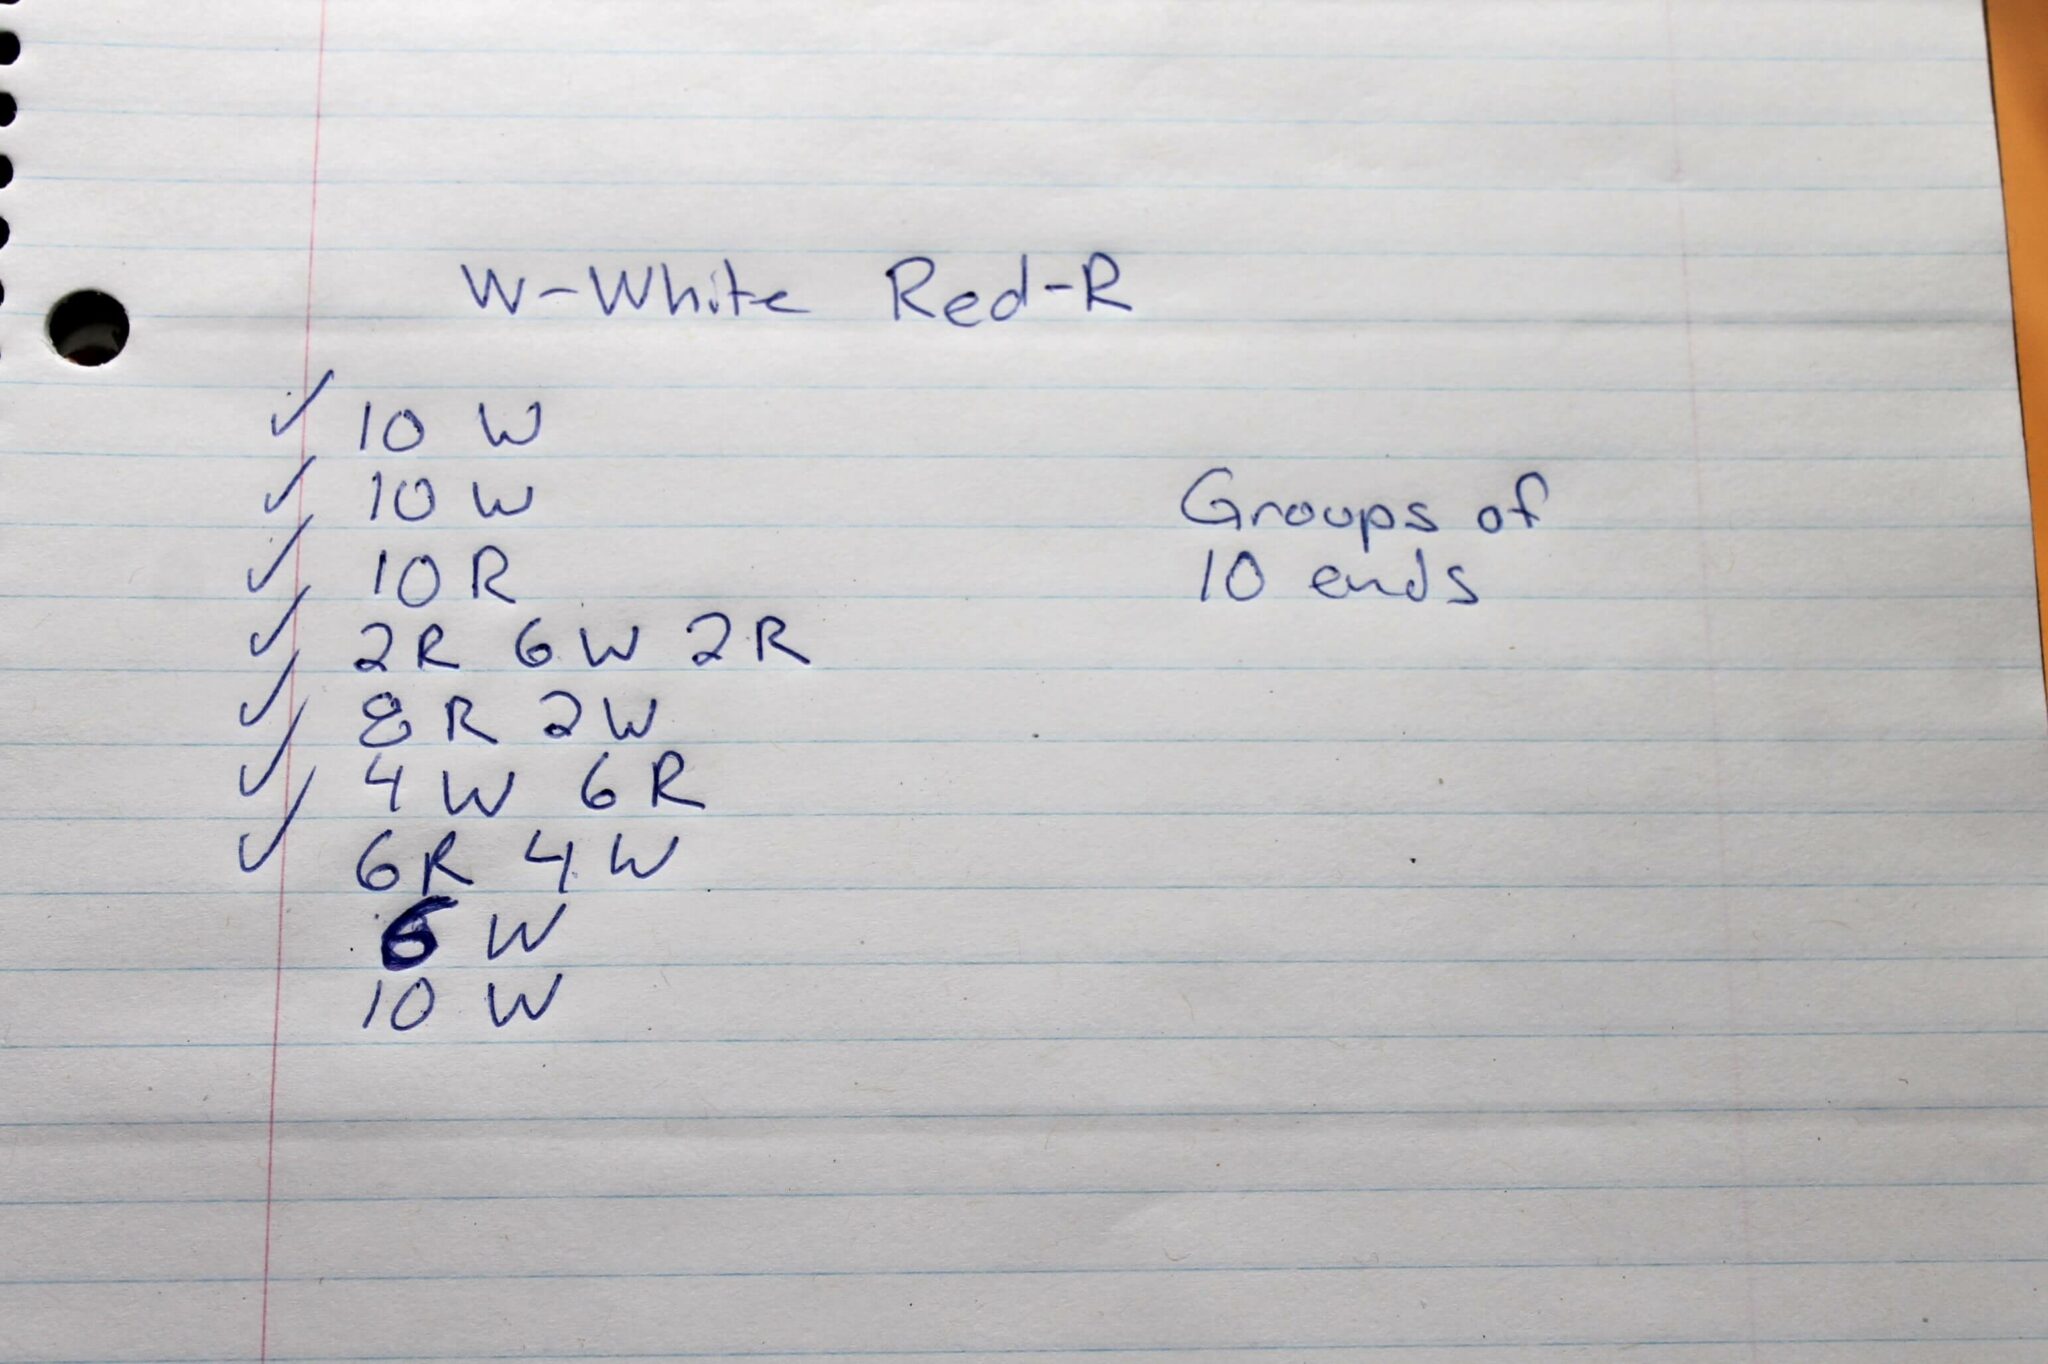 W-White Red-R
✓ 10 W
✓ 10 W
✓ 10 R
✓ 2R 6W 2R
✓ 8R 2W
✓ 4W 6R
✓ 6R 4W
6 W
10 W
Groups of
10 ends